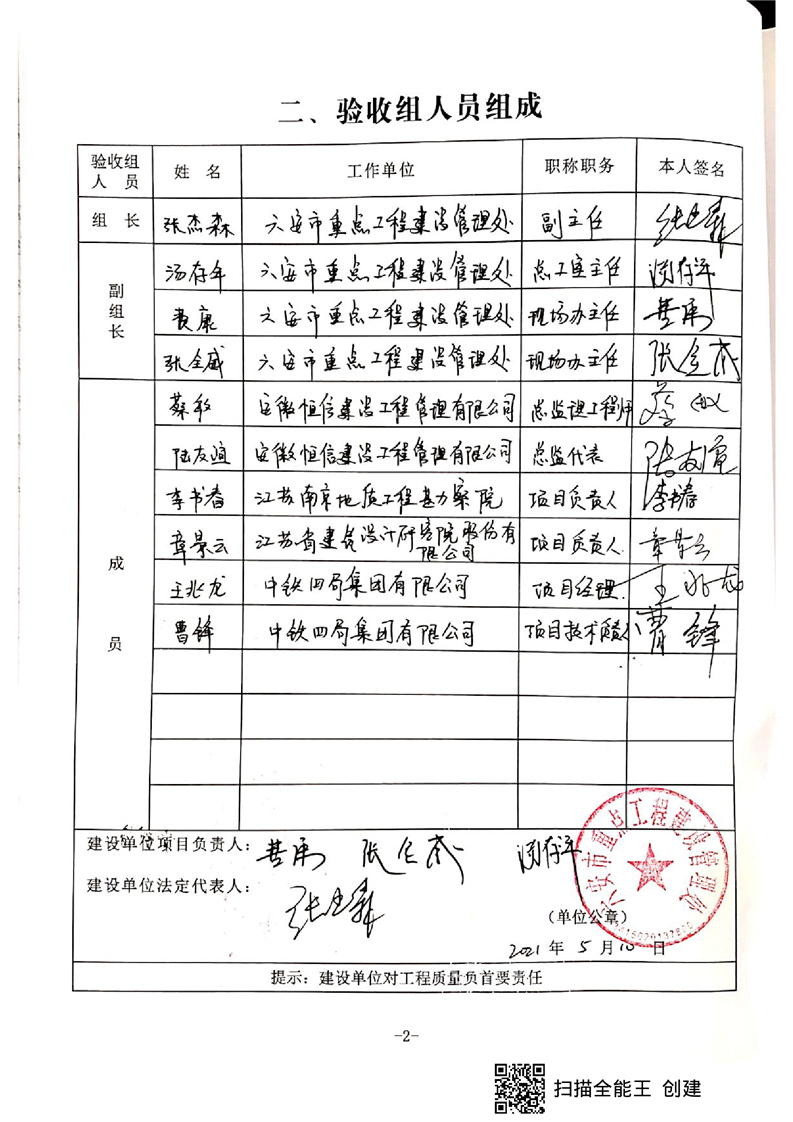 二、验收组人员组成
验收组人员 姓名 工作单位 职称职务 本人签名
组长 张杰森 六安市重点工程建设管理处 副主任
副组长 汤存年 六安市重点工程建设管理处 总工室主任 汤存年
康 六安市重点工程建设管理处 现场办主任
张全威 六安市重点工程建设管理处 现场办主任 张全威
成员 蔡敏 安徽恒信建设工程管理有限公司 总监理工程师 蔡敏
陆友谊 安徽恒信建设工程管理有限公司 总监代表 陆友谊
李书春 江苏南京地质工程勘察院 项目负责人 李书春
章景云 江苏省建筑设计研究院股份有限公司 项目负责人 章景云
王兆龙 中铁四局集团有限公司 项目经理 王兆龙
曹锋 中铁四局集团有限公司 项目技术负责人 曹锋
建设单位项目负责人： 张全威 汤存年
建设单位法定代表人：
六安市重点工程建设管理处
（单位公章）
2021年5月10日
提示：建设单位对工程质量负首要责任
-2-
扫描全能王 创建